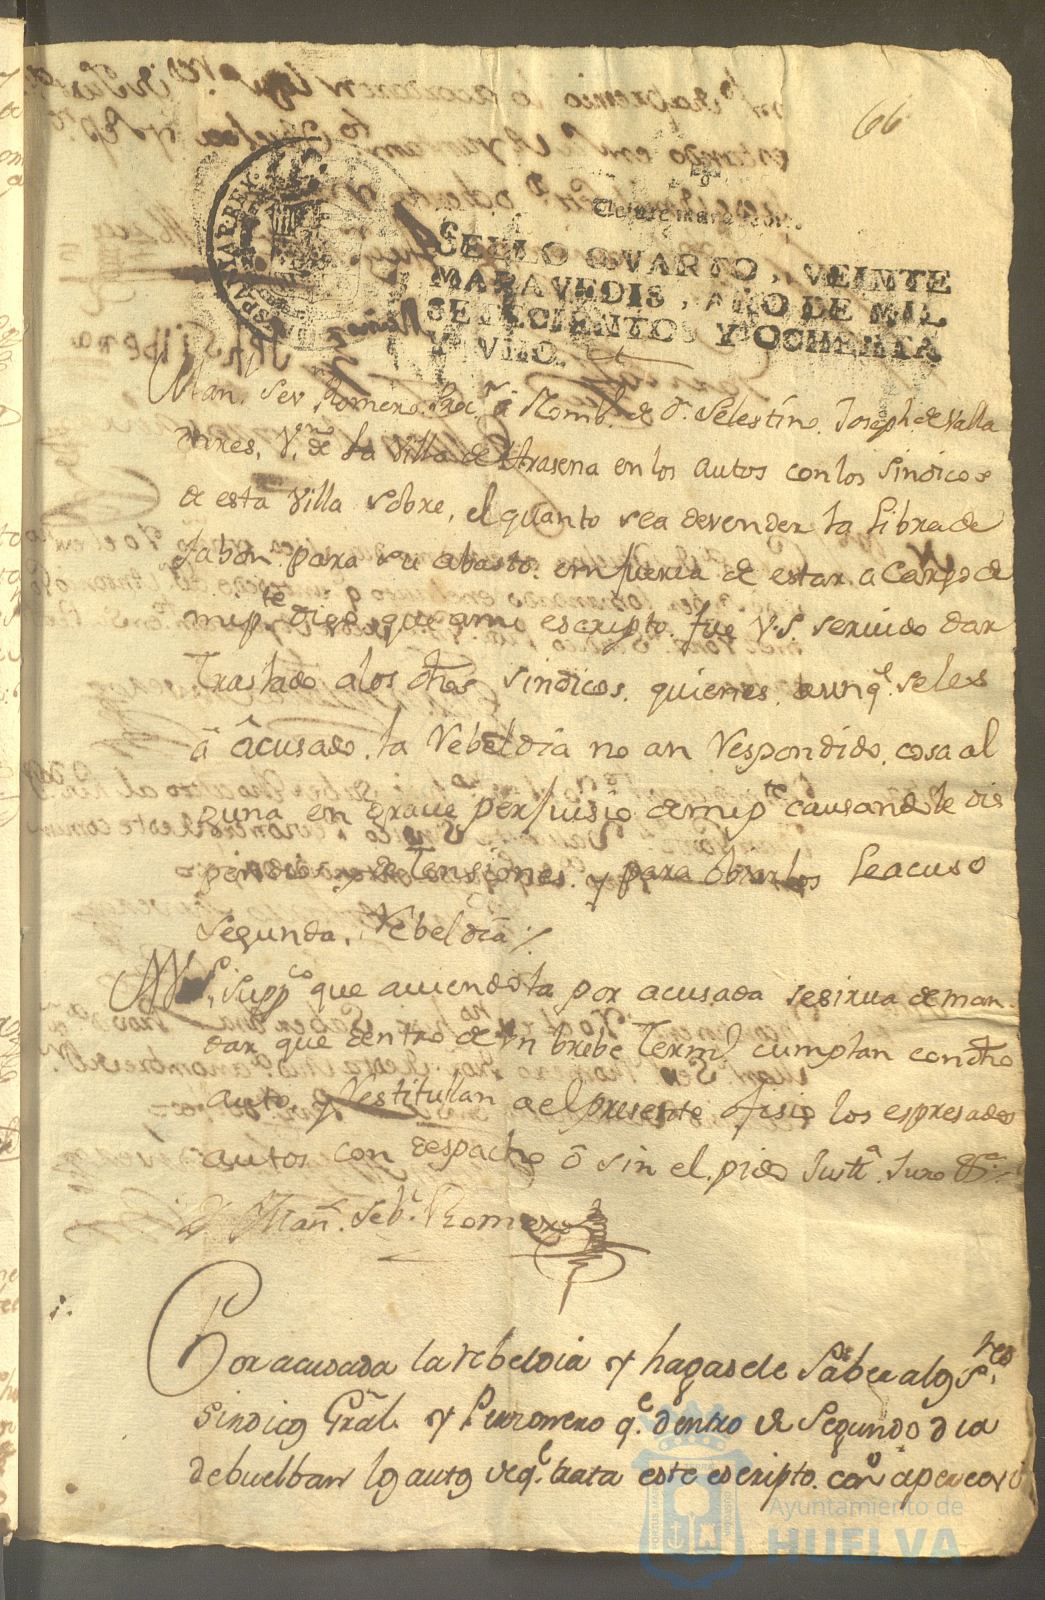 66
SELLO QVARTO, VEINTE
MARAVEDIS, AÑO DE MIL
SETECIENTOS Y OCHENTA
Y VNO.
Man. Sev.n Romero Proc.r â Nomb.e de D.n Selestino Joseph de Valla
dares, V.no de la Villa de Arasena en los autos con los Sindicos
de esta Villa sobre, el quanto sea devender la libra de
Jabon para su abasto en fuerza de estar a cargo de
mi p.te digo que a mi escripto fue V.S. servido dar
Traslado alos dhos Sindicos quienes aunq.e seles
â âcusado la Rebeldia no an Respondido, cosa al
guna en grave perjuisio de mi p.te causandole dis
pendios y estensiones y para obiarlos le acuso
Segunda Rebeldia
A V.S. Supp.co que aviendola por acusada se sirva de man
dar que dentro de vn brebe Term.o cumplan con dho
auto y Restitullan a el presente ofisio los espresados
autos con despacho ô sin el pido Just.a Juro &.a
Man. Seb.n Romero
Por acusada la rebeldia y hagasele Saber alos S.res
Sindicos Gral y Personero q.e dentro de Segundo dia
debuelban los autos de q.e trata este escripto con apercevi
Ayuntamiento de
HUELVA